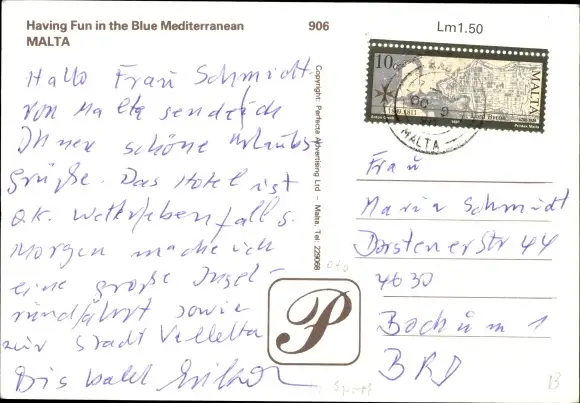 Having Fun in the Blue Mediterranean
MALTA
906
Lm1.50
Hallo Frau Schmidt
von Malta sende ich
Ihnen schöne Urlaubs
grüße. Das Hotel ist
o.k. Wetter ebenfalls.
Morgen mache ich
eine große Insel-
rundfahrt sowie
zur Stadt Valletta
Bis bald
Copyright: Perfecta Advertising Ltd - Malta. Tel: 229068
P
10c
MALTA
MALTA
Frau
Maria Schmidt
Dorstenerstr 44
4630
Bochum 1
BRD